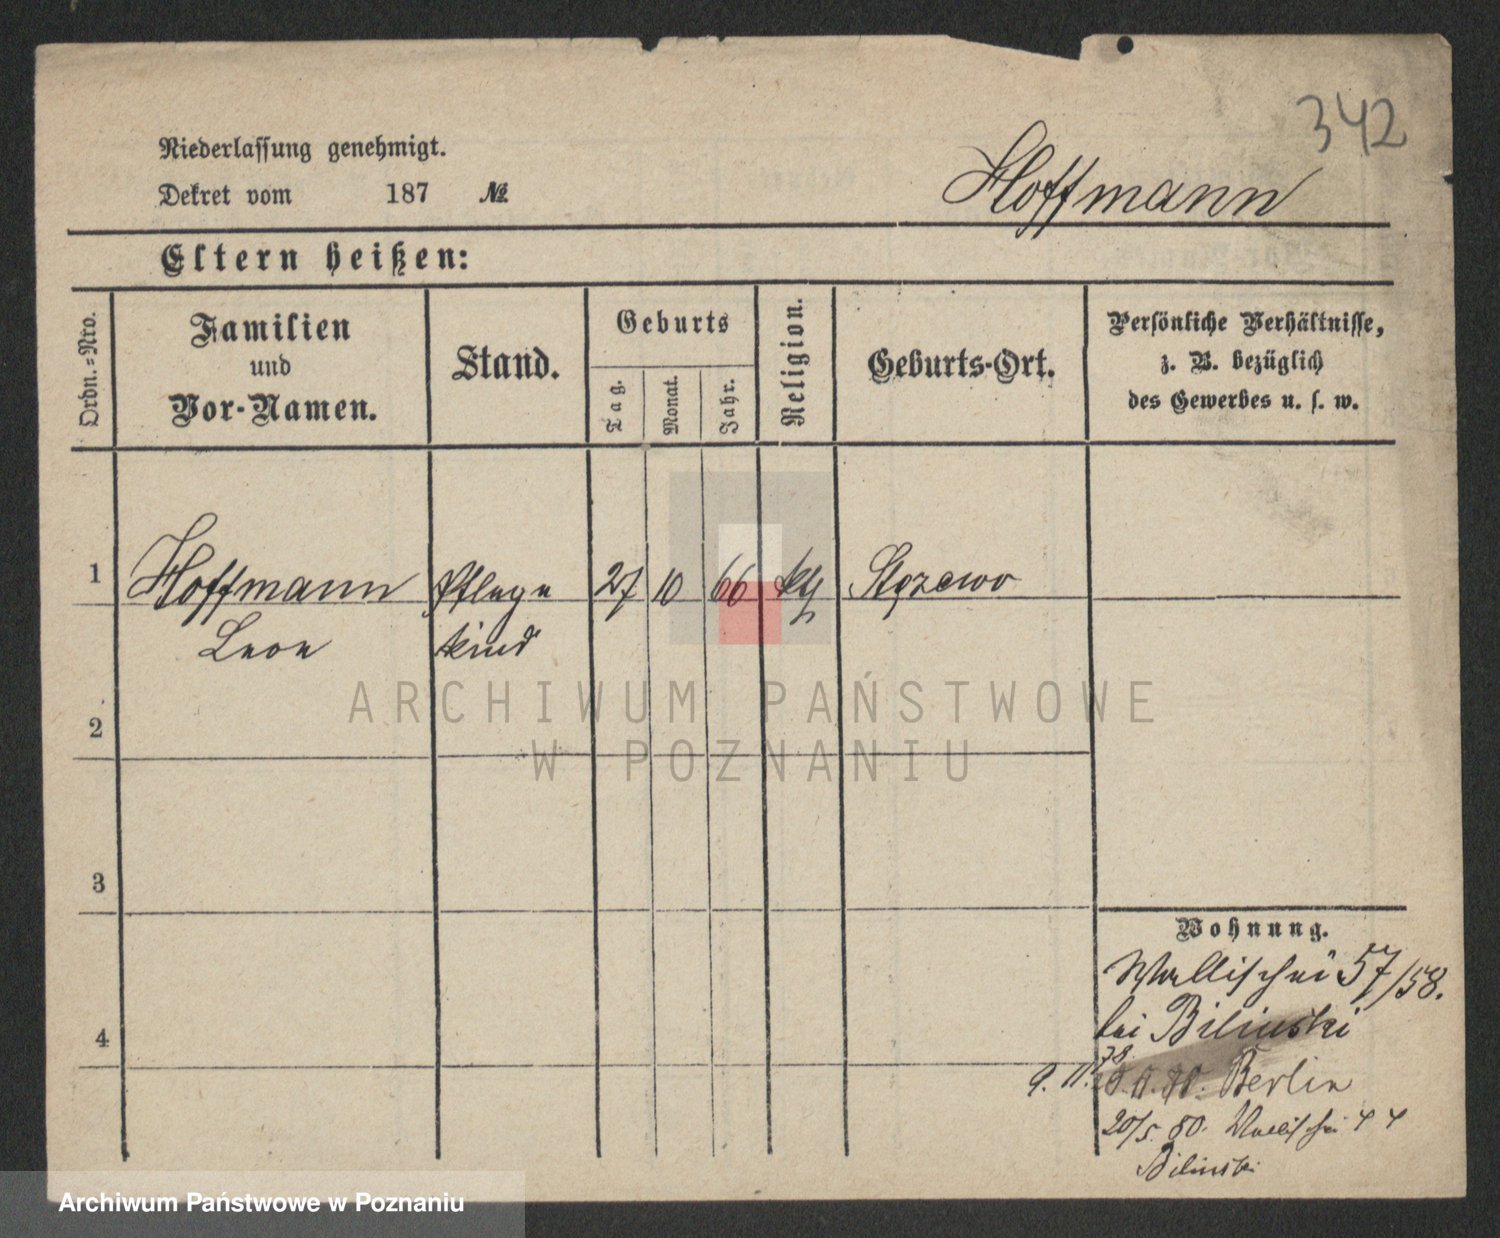 342
Niederlassung genehmigt.
Dekret vom 187 №
Hoffmann
Eltern heißen:
Ordn.-Nro.
Familien
und
Vor-Namen.
Stand.
Geburts
Tag.
Monat.
Jahr.
Religion.
Geburts-Ort.
Persönliche Verhältnisse,
z. B. bezüglich
des Gewerbes u. s. w.
1 Hoffmann Pflege 27 10 66 kth Stęszewo
Leon kind
ARCHIWUM PAŃSTWOWE
W POZNANIU
2
3
Wohnung.
Wallischei 57/58.
4
bei Bilinski
9. 11. 78. Berlin
20/5. 80. Wallischei 44
Bilinski
Archiwum Państwowe w Poznaniu